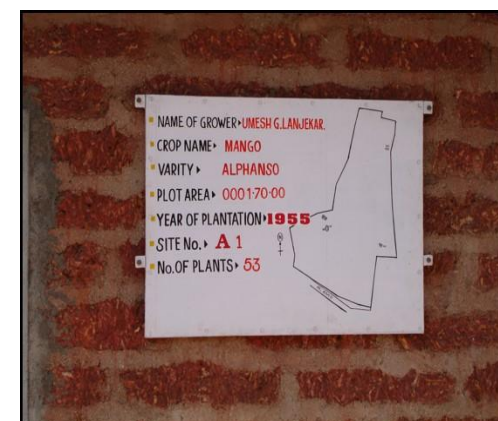 NAME OF GROWER▸UMESH G.LANJEKAR.
CROP NAME▸ MANGO
VARITY▸ ALPHANSO
PLOT AREA▸ 0001·70·00
YEAR OF PLANTATION▸1955
SITE No.▸ A 1
No.OF PLANTS▸ 53